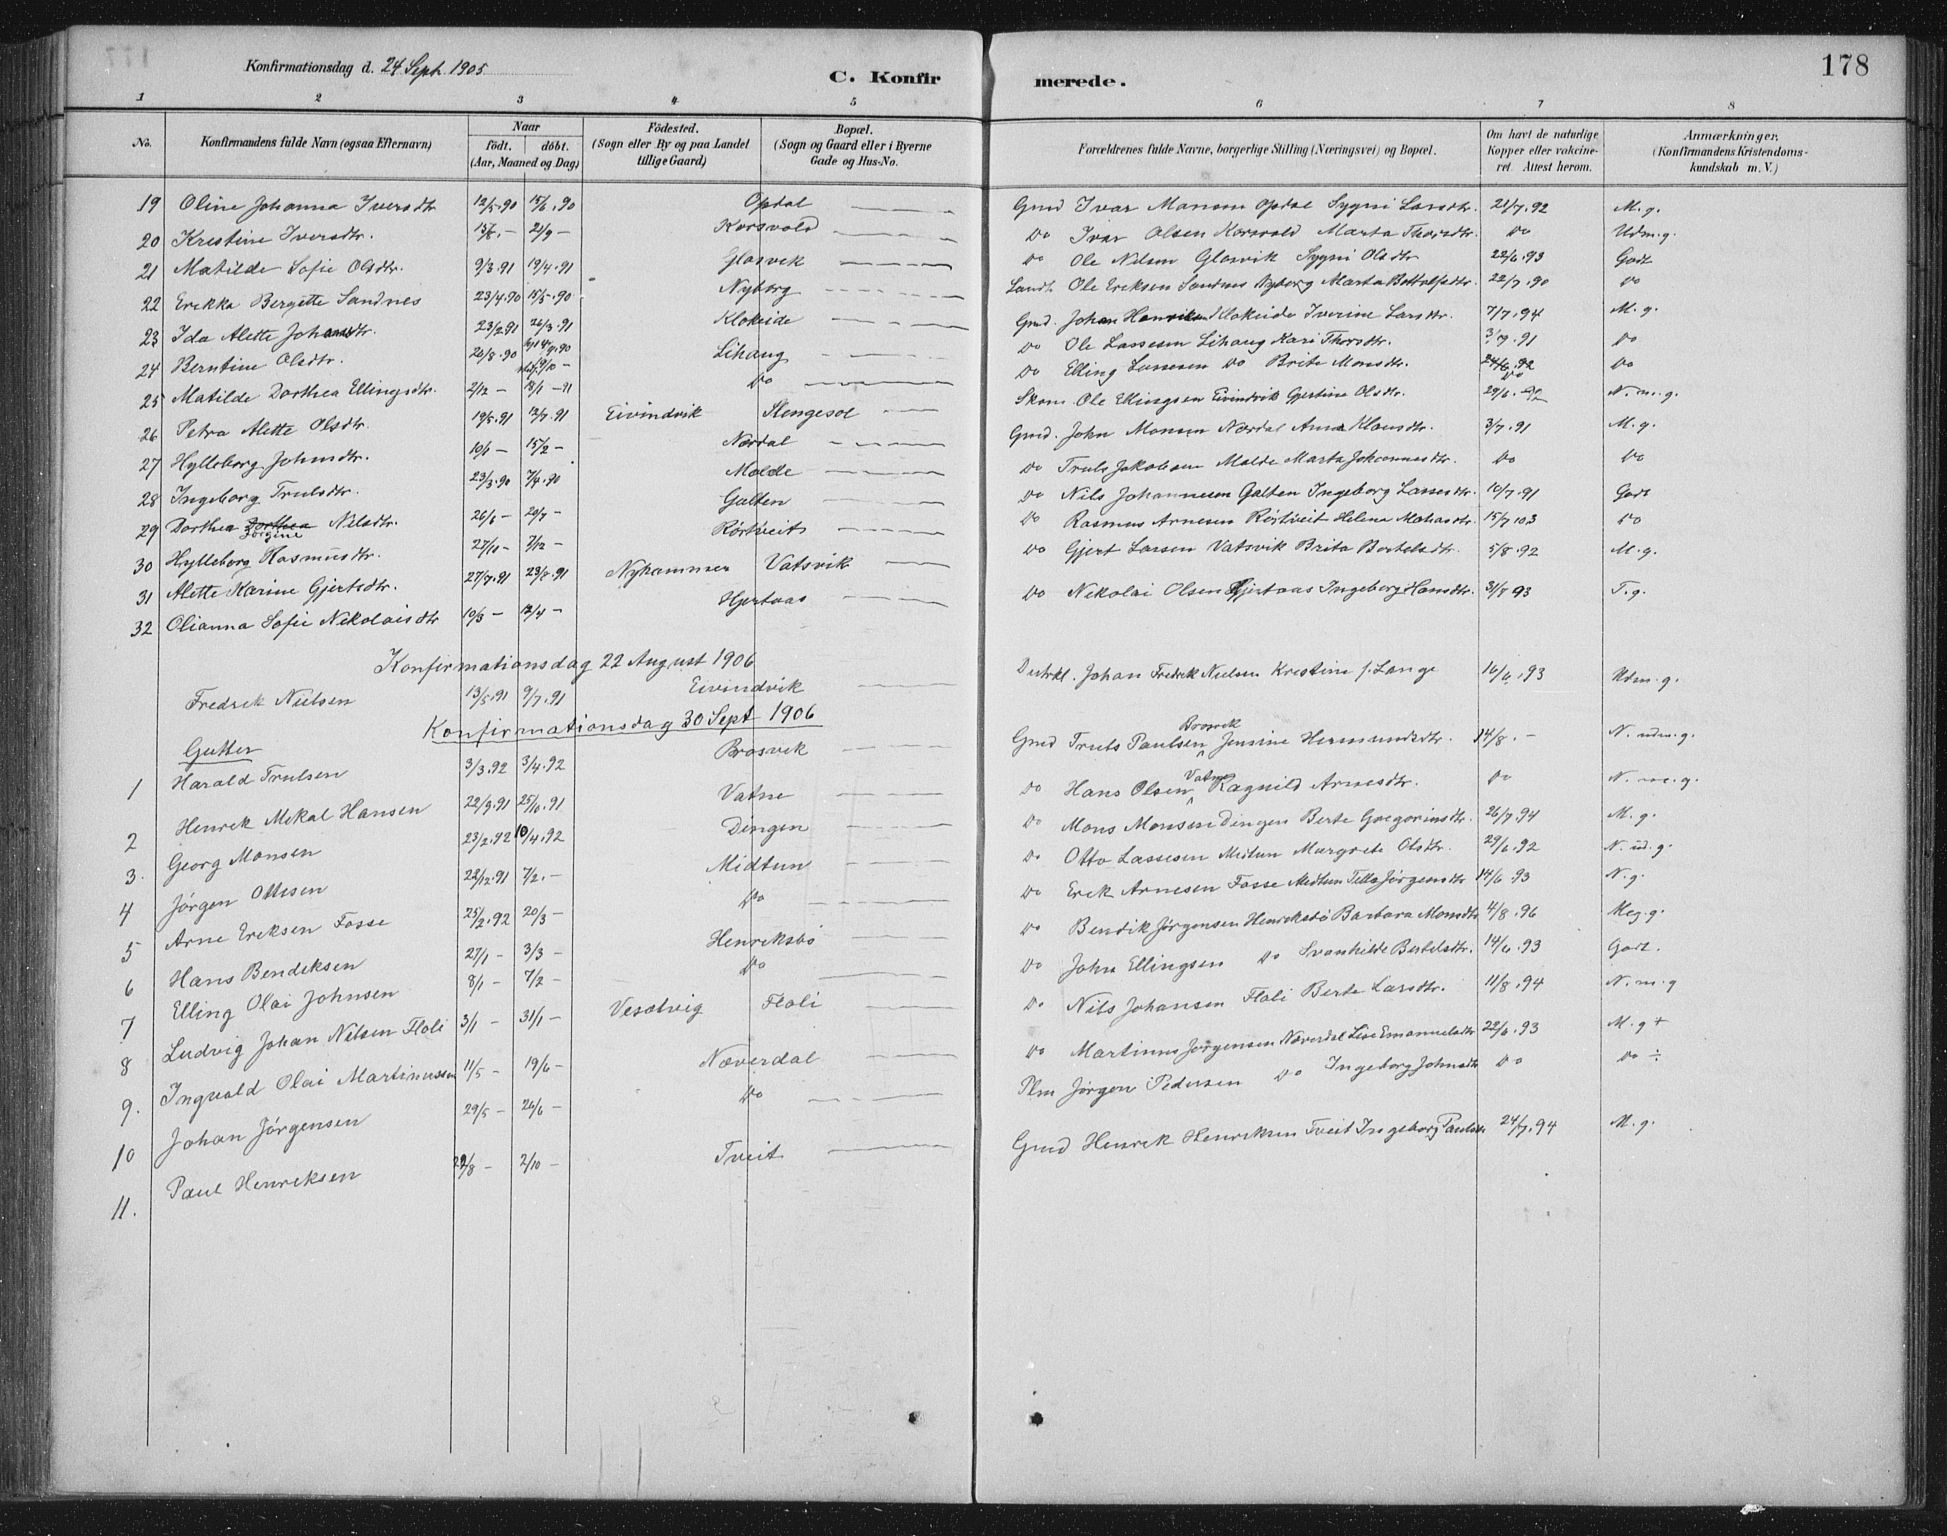 178
Konfirmationsdag d. 24 Sept. 1905
C. Konfirmerede.
1 2 3 4 5 6 7 8
No. Konfirmandens fulde Navn (ogsaa Efternavn) Naar födt. döbt. (Aar, Maaned og Dag) Födested. (Sogn eller By og paa Landet tillige Gaard) Bopæl. (Sogn og Gaard eller i Byerne Gade og Hus-No. Forældrenes fulde Navne, borgerlige Stilling (Næringsvei) og Bopæl. Om havt de naturlige Kopper eller vakcineret. Attest herom. Anmærkninger. (Konfirmandens Kristendomskundskab m. V.)
19 Oline Johanna Iversdtr 12/5.90 15/6.90 Opdal Gmd Ivar Monsen Opdal Sygni Larsdtr. 21/7.92 M.g.
20 Kristine Iversdtr. 21/9 - Korsvold Do Ivar Olsen Korsvold Marta Thorsdtr. Do Udm.g.
21 Matilde Sofie Olsdtr. 9/3.91 19/4.91 Glosvik Do Ole Nilsen Glosvik Sygni Olsdtr 22/6.93 Godt
22 Erikka Bergette Sandnes 23/4.90 15/5.90 Nyborg Ole Eriksen Sandnes Nyborg Marta 22/7.90 Do
23 Ida Alette Johansdtr. 23/2.91 26/3.91 Klokeide Gmd. Johan Klokeide Iverine Larsdtr. 7/7.94 M.g.
24 Berntine Olsdtr. 20/8.90 Lihaug Do Ole Lassesen Lihaug Kari Thorsdtr. 3/7.91 Do
25 Matilde Dorthea Ellingsdtr. 2/12 - 18/1 - 91 Do Do Elling Lassesen Do Brite Monsdtr. 24/6.92 Do
26 Petra Alette Olsdtr. 19/5.91 12/7.91 Eivindvik Stengesol Skom. Ole Ellingsen Eivindvik Gjertine Olsdtr. N.m.g.
27 Hylleborg Johnsdtr. 10/1 - 15/2 - Nordal Gmd. John Monsen Nordal Anna Klausdtr. 3/7.91 M.g.
28 Ingeborg Trulsdtr. 23/3.90 7/4.90 Molde Do Truls Jakobsen Molde Marta Johannesdtr. Do Do
29 Dorthea Dorthea Jorgine Nilsdtr. 26/6 - 20/7 - Galten Do Nils Johannesen Galten Ingeborg Lassesdtr. 10/7.91 Godt
30 Hylleborg Rasmusdtr. 27/10 - 7/12 - Rörtveit Do Rasmus Arnesen Rörtveit Helena 15/7 103 Do
31 Alette Karine Gjertsdtr. 27/7.91 23/8.91 Nyhammer Vatsvik Do Gjert Larsen Vatsvik Brita Bertelsdtr. 5/8.92 M.g.
32 Olianna Sofie Nikolaisdtr 10/3 - 12/4 - Hjertaas Do Nikolai Olsen Hjertaas Ingeborg Hansdtr. 31/8 93 T.g.
Konfirmationsdag 22 August 1906
Fredrik Nielsen 13/5.91 9/7.91 Eivindvik Johan Fredrik Nielsen Kristine f. Lange 16/6.93 Udm.g.
Konfirmationsdag 30 Sept 1906
Gutter
1 Harald Trulsen 3/3.92 3/4.92 Brosvik Gmd Truls Paulsen Brosvik Jensine Hermundsdtr. 14/8. - N. udm.g.
2 Henrik Mikal Hansen 22/9.91 25/10.91 Vatne Do Hans Olsen Vatne Ragnild Arnesdtr. Do N. m.g.
3. Georg Monsen 23/2.92 10/4.92 Dingen Do Mons Monsen Dingen Berte Gregoriusdtr. 26/7.94 M.g.
4 Jørgen Ottesen 22/12.91 7/2. - Midtun Do Otto Lassesen Midtun Margrete Olsdtr. 29/6.92 N. ud.g.
5 Arne Eriksen Fosse 25/2.92 20/3 - Do Do Erik Arnesen Fosse Midtun Jørgensdtr 14/6 93 N.g.
6 Hans Bendiksen 27/1 - 3/3 - Henriksbö Do Bendik Jørgensen Henriksbö Barbara Monsdtr 4/8.96 Meg.g.
7 Elling Olai Johnsen 8/1 - 7/2 - Do Do John Ellingsen Do Svanhilde Bertelsdtr. 14/6.93 Godt.
8 Ludvig Johan Nilsen Floli 3/1 - 31/1 - Floli Do Nils Johansen Floli Berte Larsdtr. 11/8.94 N.m.g
9. Ingvald Olai Martinussen 11/5 - 19/6 - Næverdal Do Martinus Jørgensen Næverdal Lise Emanuelsdtr 22/6.93 M.g +
10 Johan Jørgensen 29/5 - 26/6 - Do Plm Jørgen Pedersen Do Ingeborg Johnsdtr Do Do ÷
11. Paul Henriksen 2/10 - Tveit Gmd Henrik Henriksen Tveit Ingeborg 24/7.94 M.g.